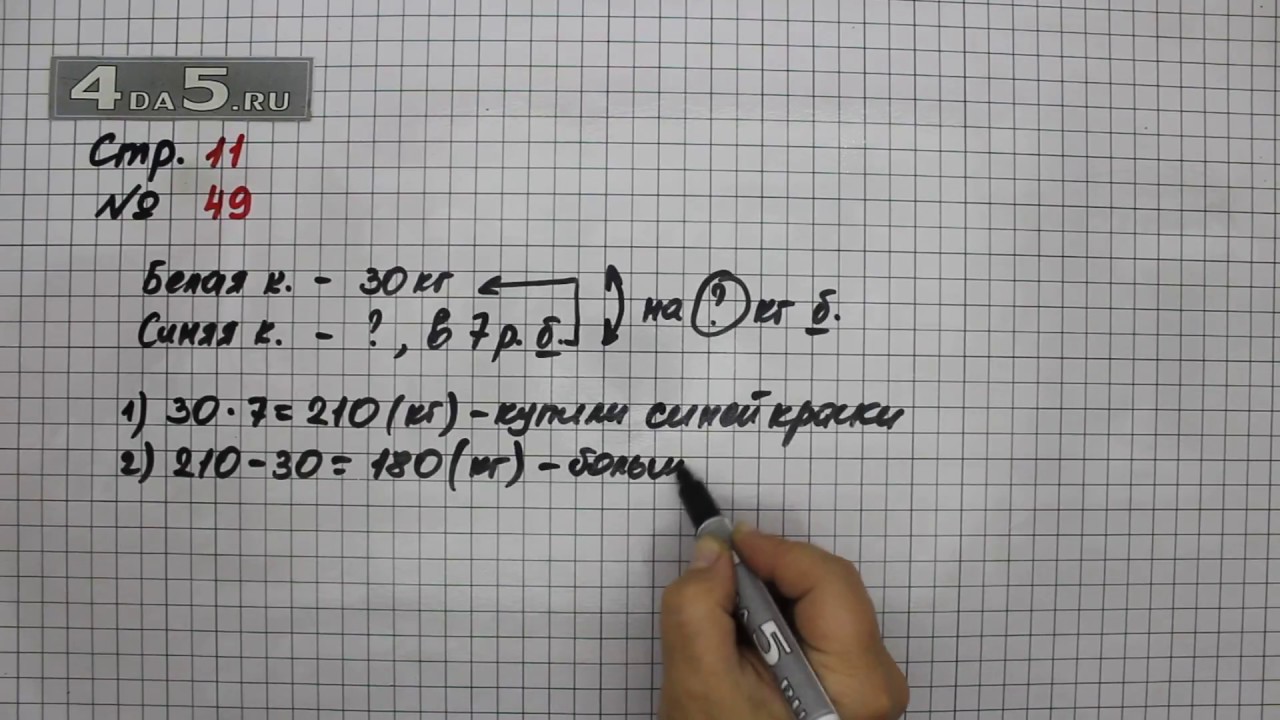 4DA5.RU
Стр. 11
№ 49
Белая к. - 30 кг
на ? кг б.
Синяя к. - ?, в 7 р. б.
1) 30 · 7 = 210 (кг) - купили синей краски
2) 210 - 30 = 180 (кг) - больш
5 RU